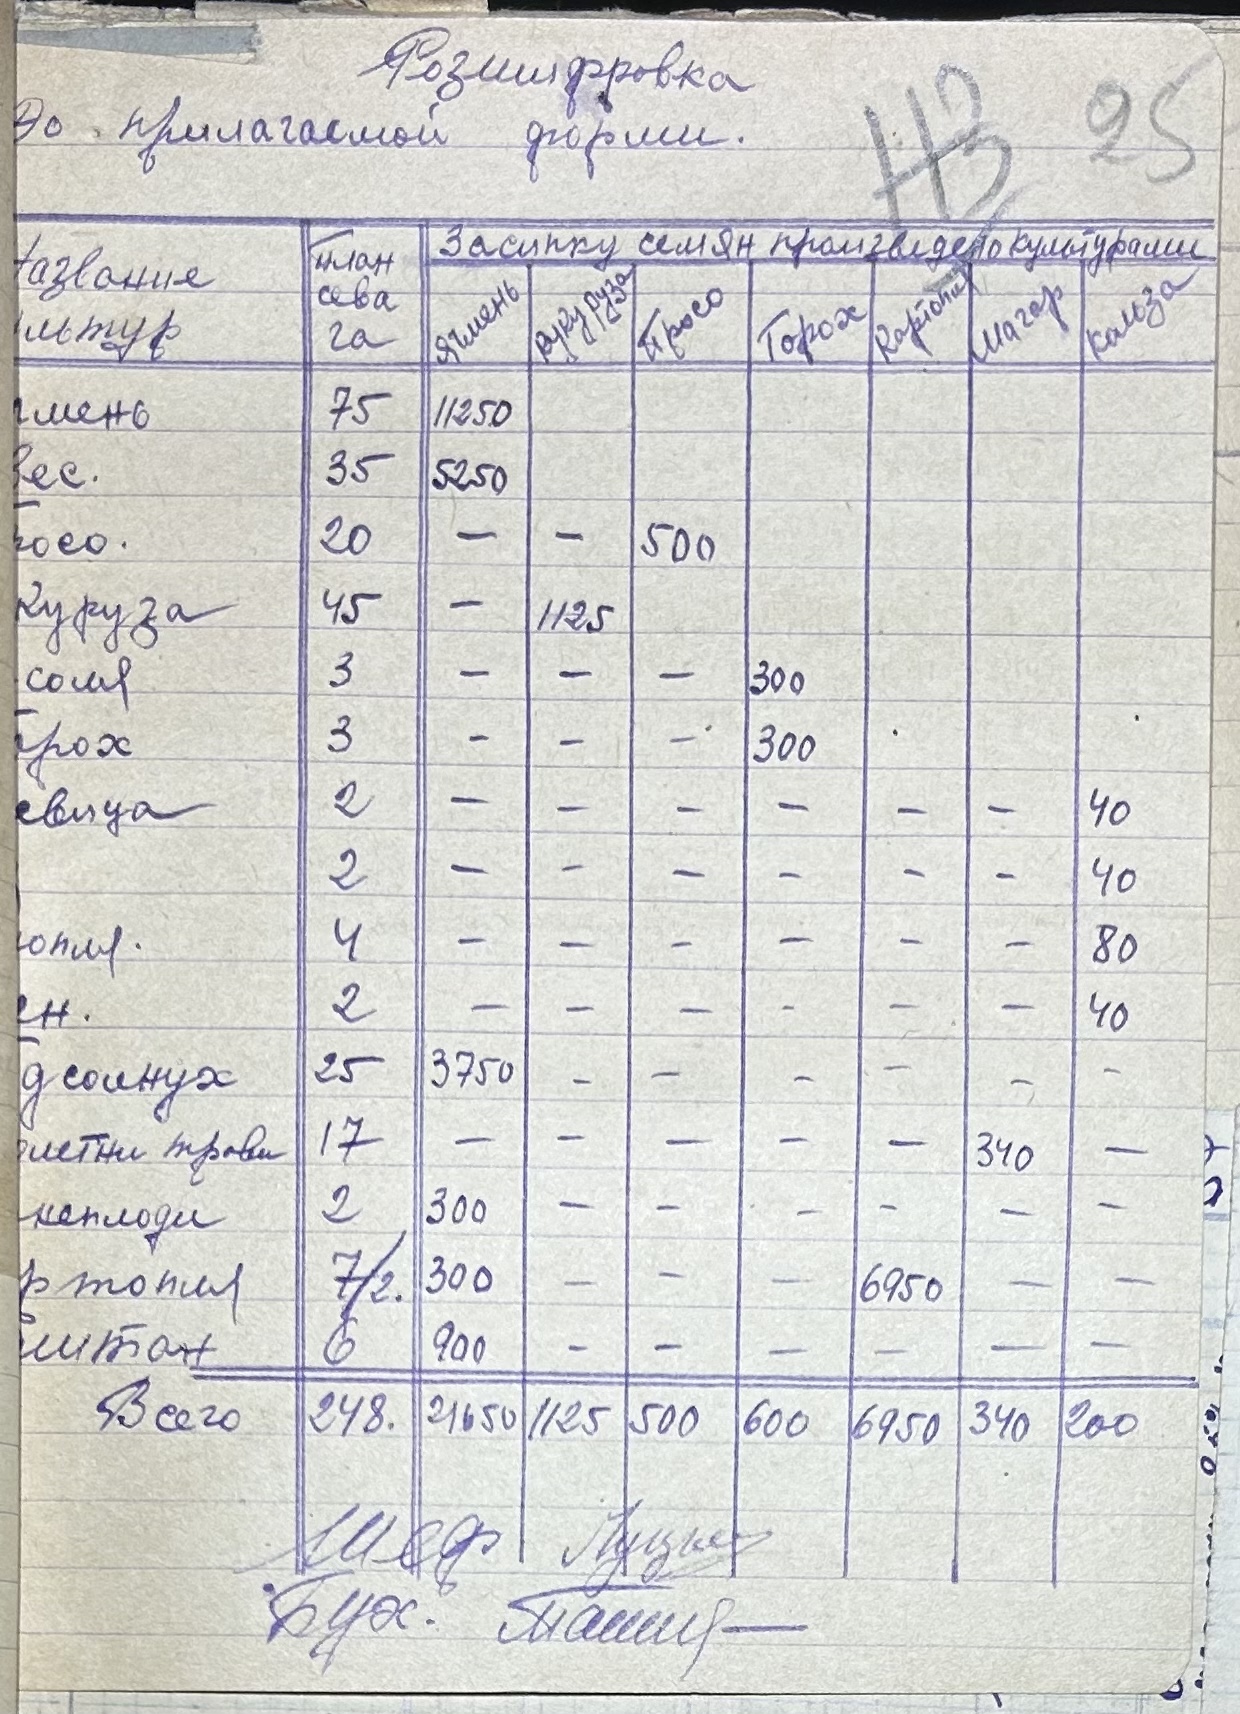 Розшифровка
До прилагаемой форми.
НЗ 25
Название культур | план сева га | Засипку семян произведено культурами
Ячмень | Кукуруза | Просо | Горох | Картопля | Магар | Кольза
чмень 75 11250
вес. 35 5250
росо. 20 — — 500
куруза 45 — 1125
соля 3 — — — 300
орох 3 - - - 300
евица 2 — — — — — — 40
2 — - — - - - 40
опля. 4 - — - — - — 80
ен. 2 — — — - — — 40
дсолнух 25 3750 - — - - - -
летни трави 17 — — — — — 340 —
неплоди 2 300 — - - - — —
ртопля 7/2. 300 — — — 6950 — —
6 900 - — — — — —
Всего 248. 21650 1125 500 600 6950 340 200
Шеф
Бух.